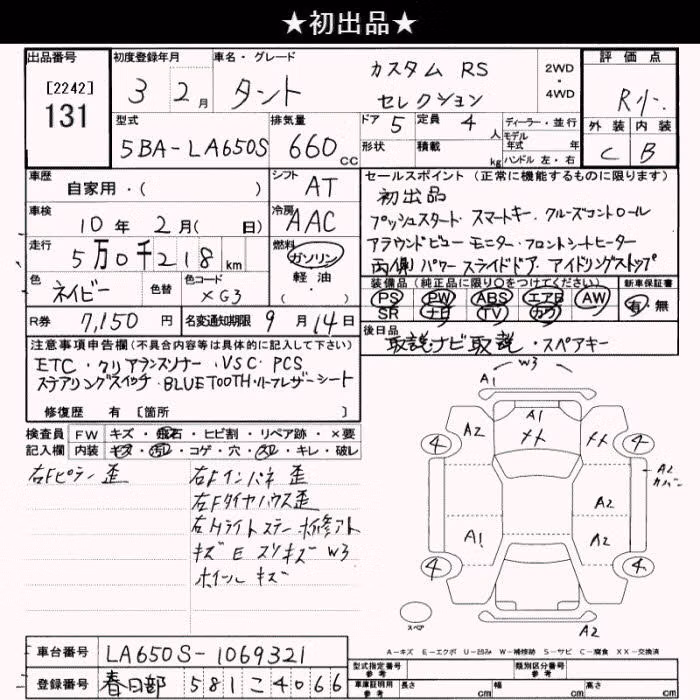 ★初出品★
出品番号 初度登録年月 車名・グレード 評価点
[2242] 131 3 2月 タント カスタム RS セレクション 2WD・4WD R小
型式 排気量 ドア 5 定員 4人 ディーラー・並行 外装 内装
5BA-LA650S 660cc 形状 積載 kg モデル年式 年 ハンドル 左・右 C B
車歴 自家用・( ) シフト AT セールスポイント(正常に機能するものに限ります)
車検 10年2月( 日) 冷房 AAC 初出品
プッシュスタート・スマートキー・クルーズコントロール
走行 5万0千218km 燃料 ガソリン 軽・油 ・( ) アラウンドビューモニター・フロントシートヒーター
両側パワースライドドア・アイドリングストップ
色 ネイビー 色替 色コード XG3 装備品(純正品に限り○をつけてください) 新車保証書
PS PW ABS エアB AW 有・無
SR TV カワ
R券 7,150円 名変通知期限 9月14日 後日品
取説ナビ取説・スペアキー
注意事項申告欄(不具合内容等は具体的に記入して下さい)
ETC・クリアランスソナー・VSC・PCS
ステアリングスイッチ・BLUETOOTH・ハーフレザーシート
修復歴 有 [箇所 ]
検査員 FW キズ・飛石・ヒビ割・リペア跡・×要
記入欄 内装 キズ・汚レ・コゲ・穴・スレ・キレ・破レ
右Fピラー歪 右Fインパネ歪
右Fタイヤハウス歪
右Hライトステー
キズ E スリキズ W3
ホイールキズ
W3
A1
A1
A2
4 4
A2 カバー
A2
A1 A2
4 4
スペア
A2
A-キズ E-エクボ U-凹み W-補修跡 S-サビ C-腐食 XX-交換済
車台番号 LA650S-1069321
登録番号 春日部 581 こ 4066
型式指定番号 参考 類別区分番号 参考
車庫証明用 参考 長さ cm 幅 cm 高さ cm